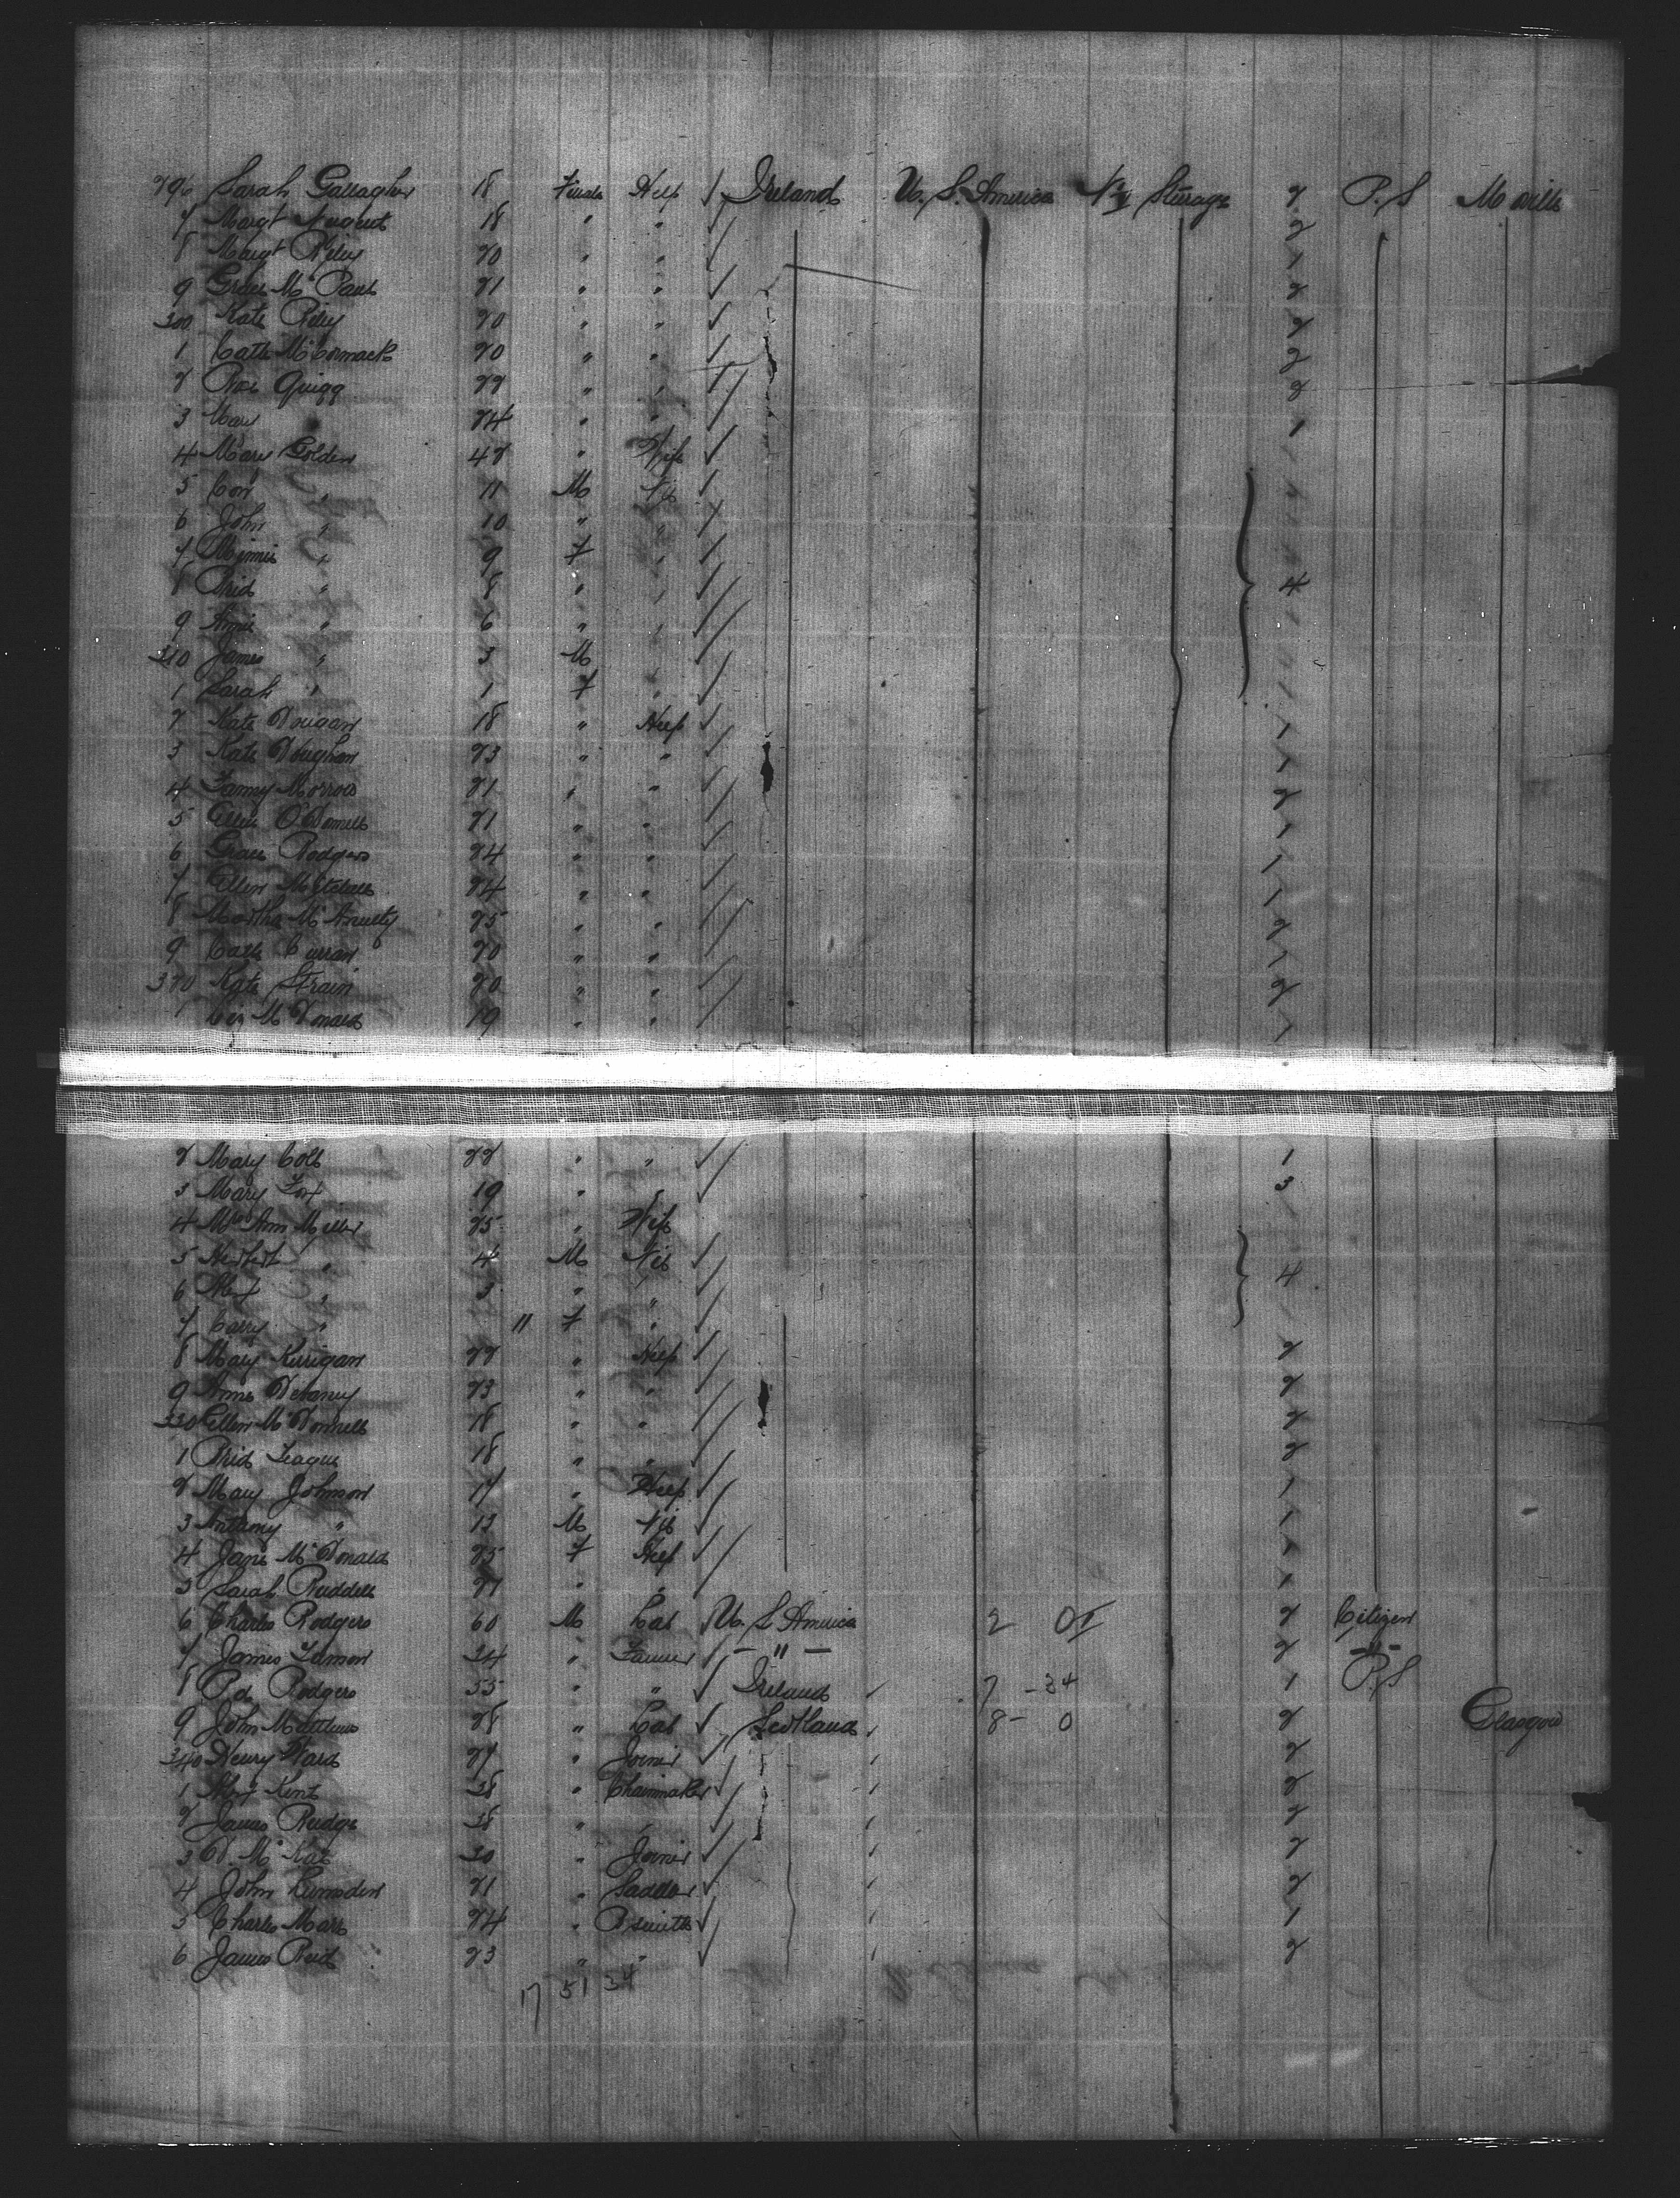 296 Sarah Gallagher 18 Female Help ✓ Ireland U. S. America NY Steerage 2 P.S Moville
7 Margt Nugent 18 " " ✓ 2
8 Margt Riley 20 " " ✓ 1
9 Grace McPaul 21 " " ✓ 2
300 Kate Riley 20 " " ✓ 2
1 Cath McCormack 20 " " ✓ 2
2 Rose Quigg 22 " " ✓ 2
3 Mary 24 " " ✓ 1
4 Mary Golden 42 " Wife ✓
5 Con " 11 M ✓
6 John " 10 " " ✓
7 Minnie " 9 F " ✓
8 Brid " 8 " " ✓ 4
9 Annie " 6 " " ✓
310 James " 3 M " ✓
1 Sarah " 1 F " ✓
2 Kate Dougan 18 " Help ✓ 1
3 Kate Vaughan 23 " " ✓ 1
4 Fanny Morrow 21 " " ✓ 2
5 Ellen O'Donnell 21 " " ✓ 1
6 Grace Rodgers 24 " " ✓ 1
7 Ellen Mitchell 24 " " ✓ 1
8 Martha McAnulty 25 " " ✓ 2
9 Cath Curran 20 " " ✓ 1
320 Kate Strain 20 " " ✓ 2
1 McDonald 19 " " 1
2 Mary Coll 22 " " ✓ 1
3 Mary Fox 19 " " ✓ 3
4 Mrs Ann Miller 25 " Wife
5 Herbert " 4 M ✓ 4
6 Alex " 3 " " ✓
7 Carry " 11 F " ✓
8 Mary Kerrigan 22 " Help ✓ 2
9 Annie Delaney 23 " " ✓ 2
330 Ellen McDonnell 18 " " ✓ 2
1 Brid Teague 18 " " ✓ 2
2 Mary Johnson 17 " Help ✓ 1
3 Anthony " 13 M ✓ 1
4 Jane McDonald 25 F Help ✓ 1
5 Sarah Ruddell 21 " " ✓ 1
6 Charles Rodgers 60 M Lab ✓ U. S America 2 Citizen
7 James 34 " Farmer ✓ — " — 2 — " —
8 Pd. Rodgers 55 " " ✓ Ireland 7 - 34 1 P.S
9 John Matthews 28 " Lab ✓ Scotland 8 - 0 2 Glasgow
340 Henry Ward 27 " Joiner ✓ 2
1 Alex Kent 38 " Chainmaker ✓ 2
2 James Rudge 38 " " ✓ 2
3 D. McKay 30 " Joiner ✓ 2
4 John Lumsden 21 " Saddler ✓ 2
5 Charles Marr 24 " Bsmith ✓ 1
6 James Reid 23 " " ✓ 2
17 51 34